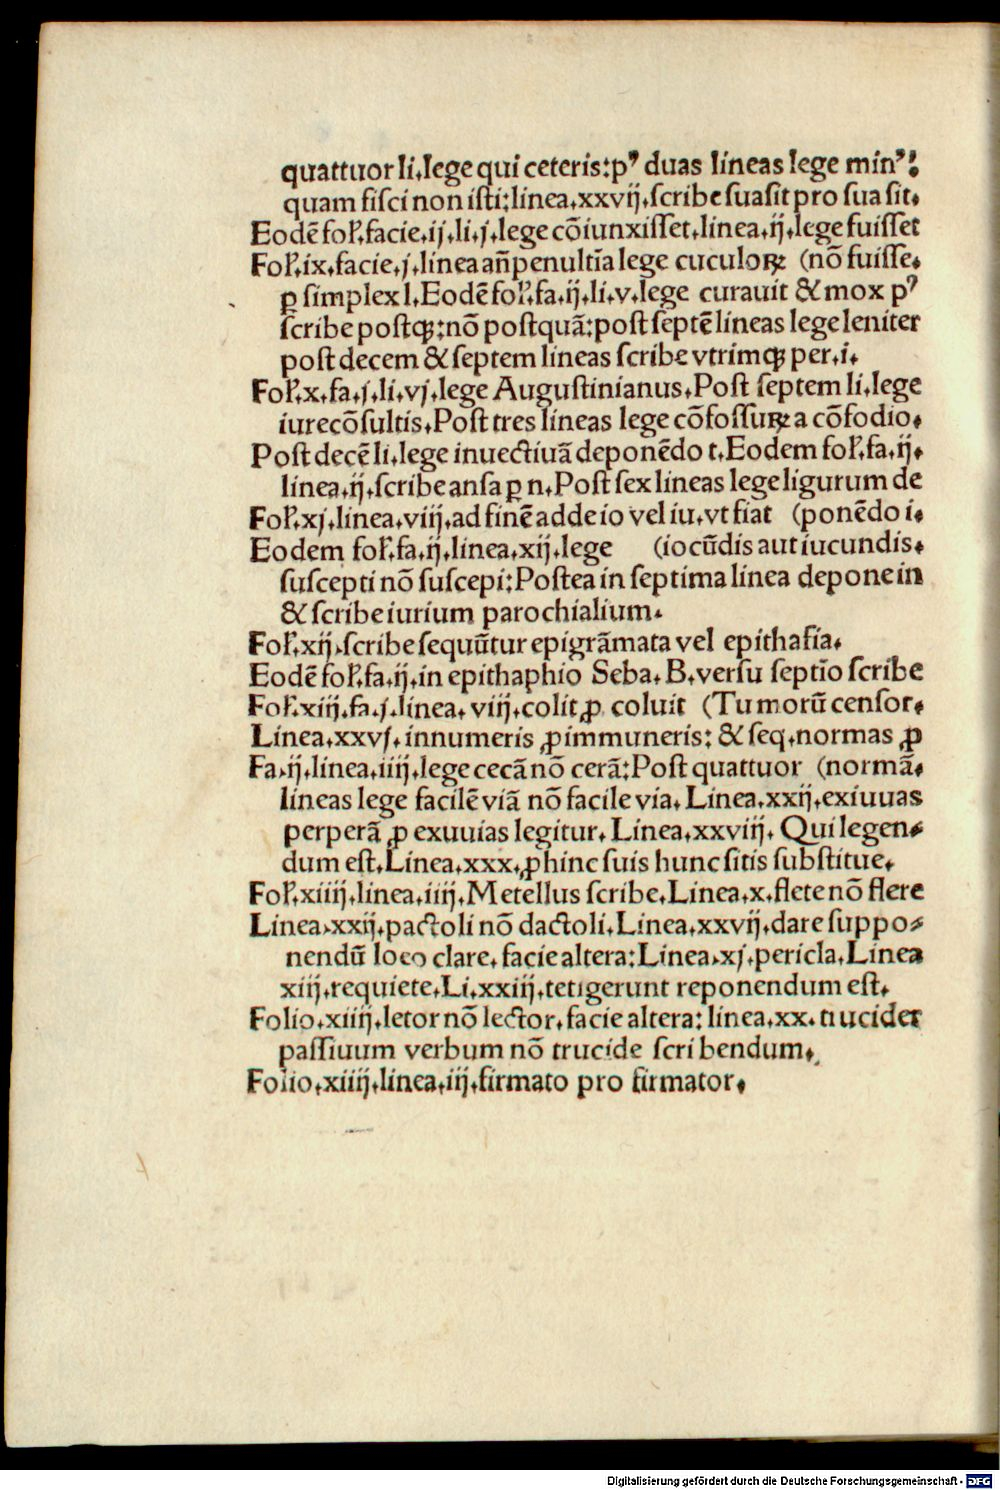 quattuor li.lege qui ceteris:pꝰ duas lineas lege minꝰ!
quam fisci non isti:linea.xxvij.scribe suasit pro sua sit.
Eodē fol̕.facie.ij.li.j.lege cōiunxisset.linea.ij.lege fuisset
Fol̕.ix.facie.j.linea an̄penultīa lege cuculoꝝ (nō fuisse.
ꝑ simplex l.Eodē fol̕.fa.ij.li.v.lege curauit & mox pꝰ
scribe postqꝫ:nō postquā:post septē lineas lege leniter
post decem & septem lineas scribe vtrimqꝫ per.i.
Fol̕.x.fa.j.li.vj.lege Augustinianus.Post septem li.lege
iurecōsultis.Post tres lineas lege cōfossuꝝ a cōfodio.
Post decē li.lege inuectiuā deponēdo t.Eodem fol̕.fa.ij.
linea.ij.scribe ansa ꝑ n.Post sex lineas lege ligurum de
Fol̕.xj.linea.viij.ad finē adde io vel iu.vt fiat (ponēdo i.
Eodem fol̕.fa.ij.linea.xij.lege (iocūdis aut iucundis.
suscepti nō suscepi:Postea in septima linea depone in
& scribe iurium parochialium.
Fol̕.xij.scribe sequūtur epigrāmata vel epithafia.
Eodē fol̕.fa.ij.in epithaphio Seba.B.versu septīo scribe
Fol̕.xiij.fa.j.linea.viij.colit ꝓ coluit (Tu morū censor.
Linea.xxvj.innumeris ꝓ immuneris: & seq.normas ꝓ
Fa.ij.linea.iiij.lege cecā nō cerā:Post quattuor (normā.
lineas lege facilē viā nō facile via.Linea.xxij.exiuuas
perperā ꝓ exuuias legitur.Linea.xxviij.Qui legen⸗
dum est.Linea.xxx.ꝓ hinc suis hunc sitis substitue.
Fol̕.xiiij.linea.iiij.Metellus scribe.Linea.x.flete nō flere
Linea.xxij.pactoli nō dactoli.Linea.xxvij.dare suppo⸗
nendū loco clare.facie altera:Linea.xj.pericla.Linea
xiij.requiete.Li.xxiij.tetigerunt reponendum est.
Folio.xiiij.letor nō lector.facie altera:linea.xx.trucider
passiuum verbum nō trucide scribendum.
Folio.xiiij.linea.iij.firmato pro firmator.
Digitalisierung gefördert durch die Deutsche Forschungsgemeinschaft - DFG